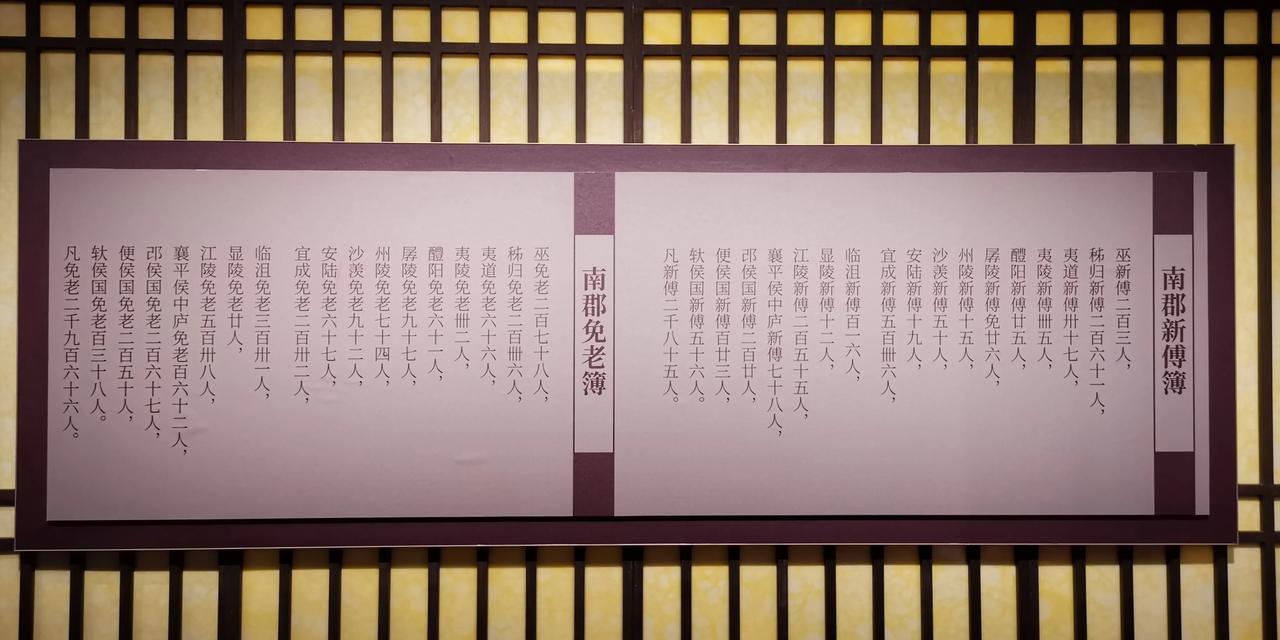 南郡新傅簿
巫新傅二百三人，
秭归新傅二百六十一人，
夷道新傅卅十七人，
夷陵新傅卌五人，
醴阳新傅廿五人，
孱陵新傅免廿六人，
州陵新傅十五人，
沙羡新傅五十人，
安陆新傅十九人，
宜成新傅五百卌六人，
临沮新傅百一六人，
显陵新傅十二人，
江陵新傅二百五十五人，
襄平侯中庐新傅七十八人，
邔侯国新傅二百廿人，
便侯国新傅百廿三人，
轪侯国新傅五十六人。
凡新傅二千八十五人。
南郡免老簿
巫免老二百七十八人，
秭归免老二百卌六人，
夷道免老六十六人，
夷陵免老卌二人，
醴阳免老六十一人，
孱陵免老九十七人，
州陵免老七十四人，
沙羡免老九十二人，
安陆免老六十七人，
宜成免老二百卅二人，
临沮免老三百卅一人，
显陵免老廿人，
江陵免老五百卅八人，
襄平侯中庐免老百六十二人，
邔侯国免老二百六十七人，
便侯国免老二百五十人，
轪侯国免老百三十八人。
凡免老二千九百六十六人。